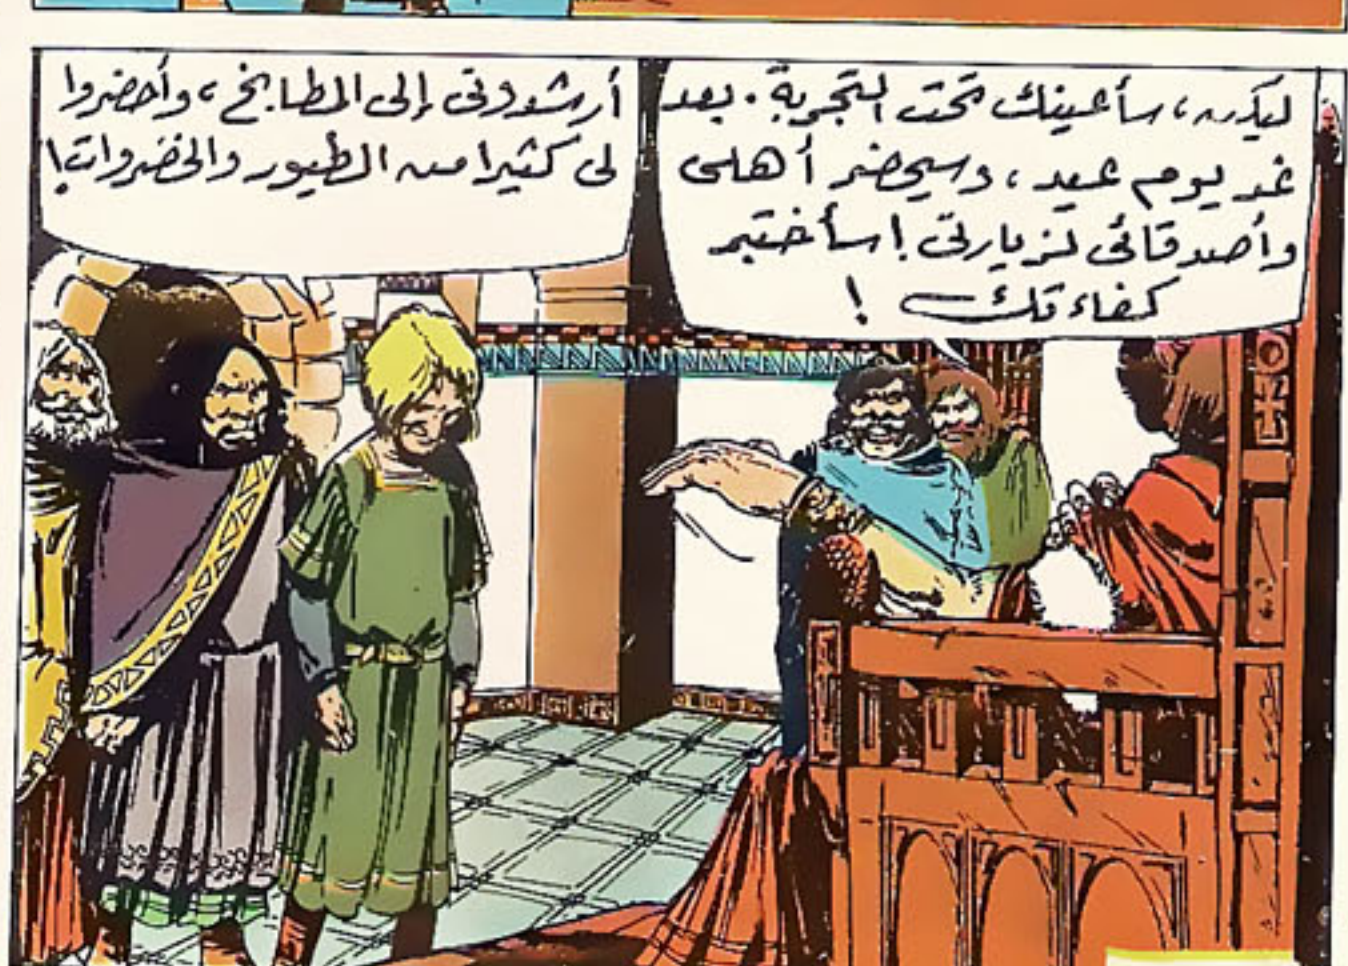 ليكن، سأعينك تحت التجربة. بعد
غد يوم عيد، وسيحضر أهلى
وأصدقائى لزيارتى! سأختبر
كفاءتك !
أرشدونى إلى المطابخ، وأحضروا
لى كثيرا من الطيور والخضروات!